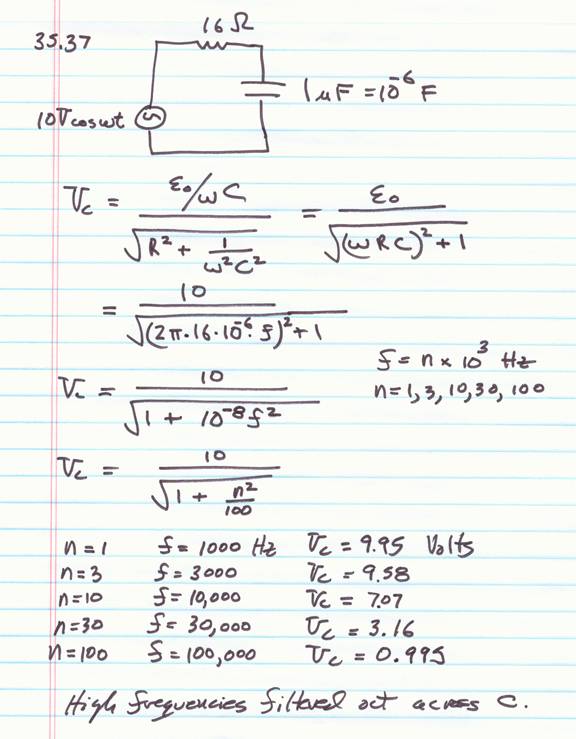 16 Ω
35.37
1 μF = 10⁻⁶ F
10V cos ωt
V_C = (ε₀/ωC) / √(R² + 1/(ω²C²)) = ε₀ / √((ωRC)² + 1)
= 10 / √((2π·16·10⁻⁶·f)² + 1)
f = n × 10³ Hz
n = 1, 3, 10, 30, 100
V_C = 10 / √(1 + 10⁻⁸f²)
V_C = 10 / √(1 + n²/100)
n = 1 f = 1000 Hz V_C = 9.95 Volts
n = 3 f = 3000 V_C = 9.58
n = 10 f = 10,000 V_C = 7.07
n = 30 f = 30,000 V_C = 3.16
n = 100 f = 100,000 V_C = 0.995
High frequencies filtered out across C.